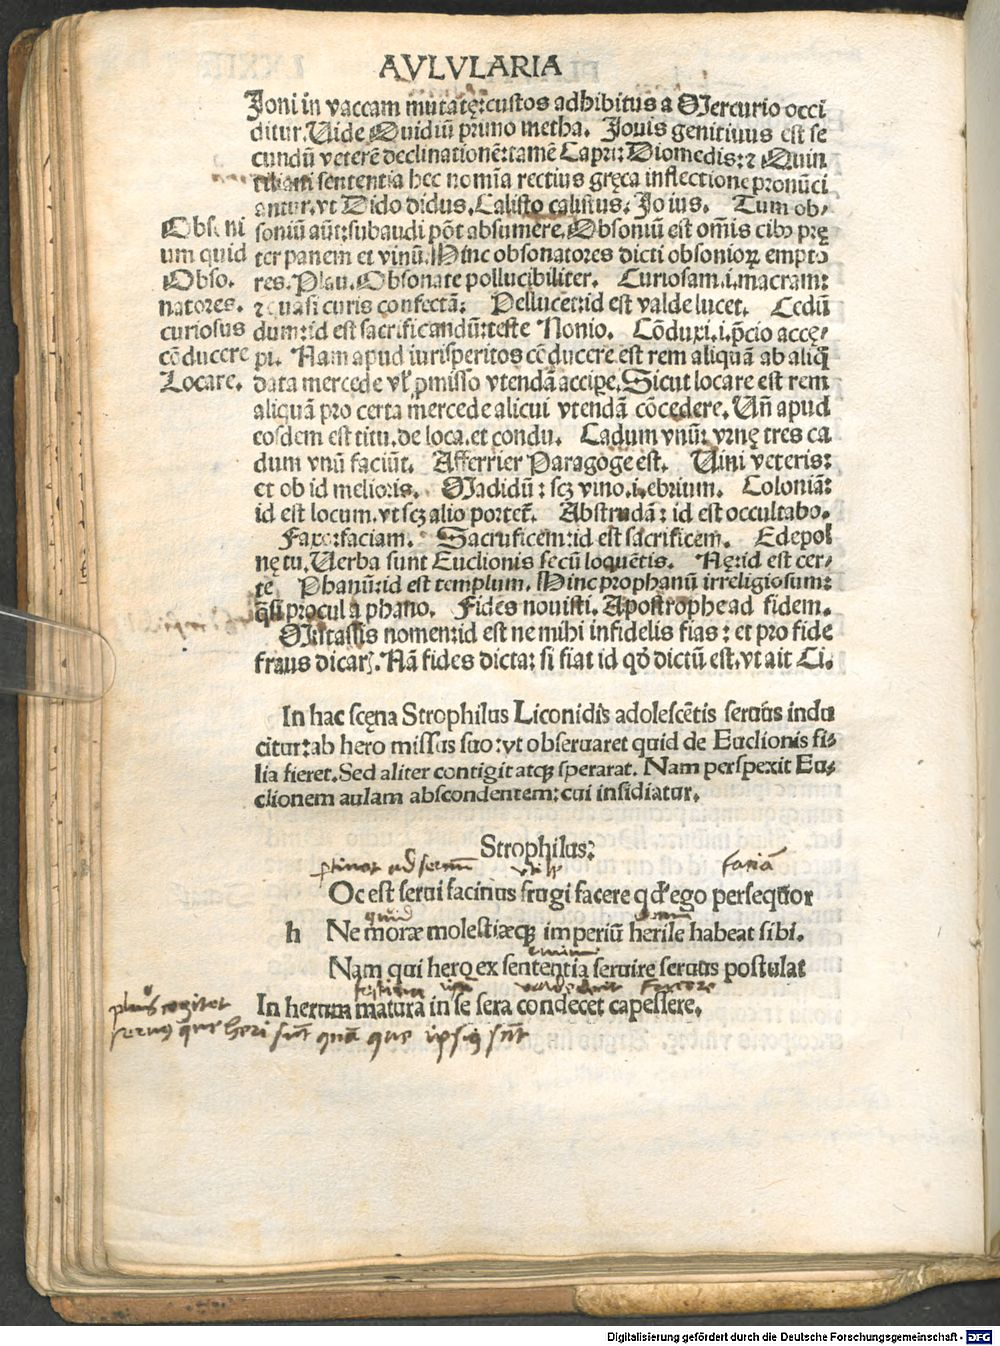 AVLVLARIA
Joni in vaccam mutatę: custos adhibitus a Mercurio occi
ditur. Uide Ouidiū primo metha. Jouis genitiuus est se
cundū veterē declinationē: tamē Capri: Diomedis: ⁊ Quin
tiliani sententia hec nomīa rectius gręca inflectione pronūci
antur. vt Dido didus. Calisto calistus. Jo ius. Tum ob-
Obsoni
soniū aūt: subaudi pōt absumere. Obsoniū est omīs cibꝰ prę
um quid
ter panem et vinū. Hinc obsonatores dicti obsonioꝝ empto
Obso.
res. Plau. Obsonate pollucibiliter. Curiosam .i. macram:
natores.
⁊ quasi curis confectā: Pellucet: id est valde lucet. Cedū
curiosus
dum: id est sacrificandū: teste Nonio. Cōduxi .i. p̄cio accę-
cōducere
pi. Nam apud iurisperitos cōducere est rem aliquā ab aliq̄
Locare.
data mercede vl̓ ꝓmisso vtendā accipe. Sicut locare est rem
aliquā pro certa mercede alicui vtendā cōcedere. Un̄ apud
eosdem est titu. de loca. et condu. Cadum vnū: vrnę tres ca
dum vnū faciūt. Afferrier Paragoge est. Uini veteris:
et ob id melioris. Madidū: scꝫ vino .i. ebrium. Coloniā:
id est locum. vt scꝫ alio portet̄. Abstrudā: id est occultabo.
Faxo: faciam. Sacruficem: id est sacrificem. Edepol
nę tu. Uerba sunt Euclionis secū loquētis. Nę: id est cer-
te Phanū: id est templum. Hinc prophanū irreligiosum:
q̄si procul a phano. Fides nouisti. Apostrophe ad fidem.
Mistassis nomen: id est ne mihi infidelis fias: et pro fide
fraus dicaꝛ̉. Nā fides dicta: si fiat id qđ dictū est. vt ait Ci.
In hac scęna Strophilus Liconidis adolescētis seruus indu
citur: ab hero missus suo: vt obseruaret quid de Euclionis fi-
lia fieret. Sed aliter contigit atqꝫ sperarat. Nam perspexit Eu-
clionem aulam abscondentem: cui insidiatur.
Strophilus:
faciā
Oc est serui facinus frugi facere qđ ego persequor
h Ne moræ molestiæqꝫ imperiū herile habeat sibi.
Nam qui hero ex sententia seruire seruus postulat
In herum matura in se sera condecet capessere.